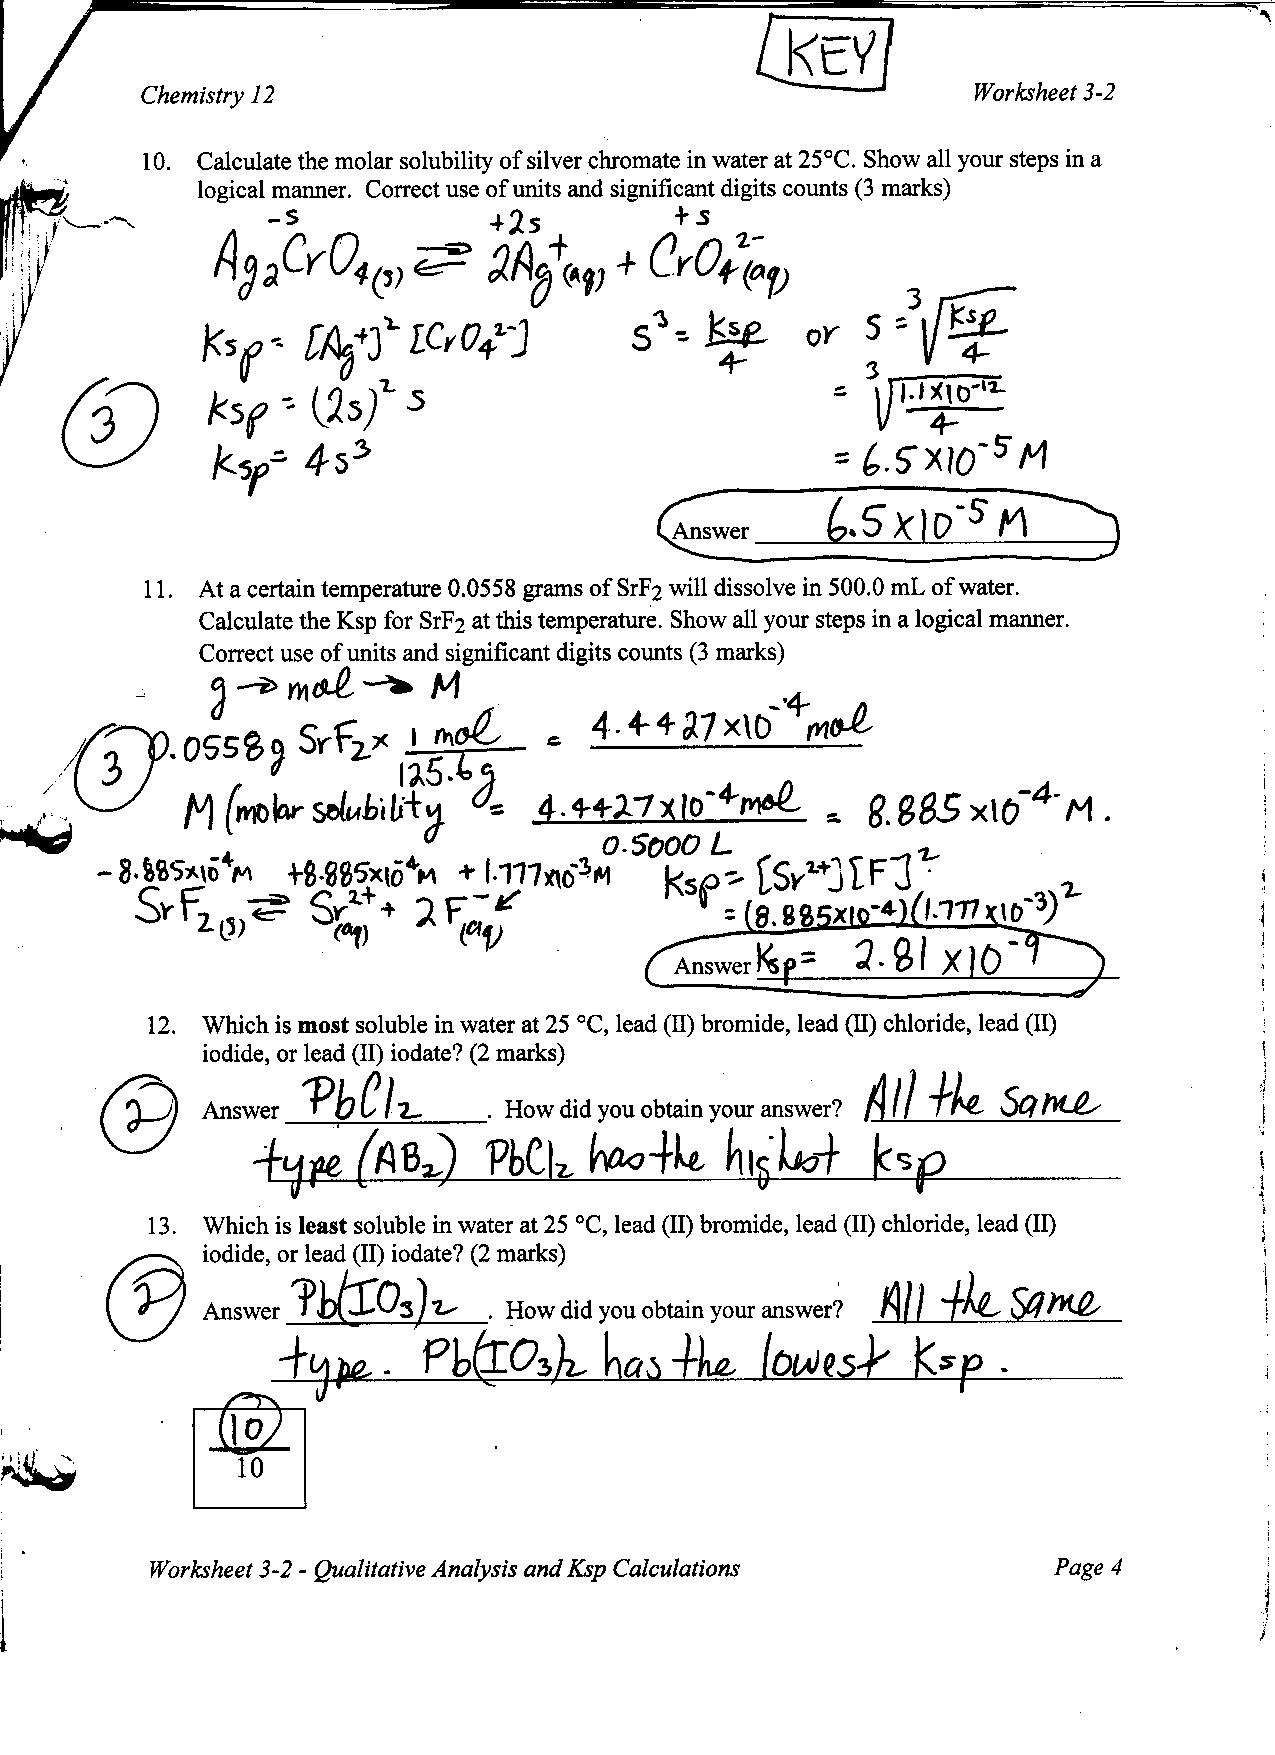 KEY
Chemistry 12 Worksheet 3-2
10. Calculate the molar solubility of silver chromate in water at 25°C. Show all your steps in a
logical manner. Correct use of units and significant digits counts (3 marks)
-s +2s +s
Ag₂CrO₄(s) ⇌ 2Ag⁺(aq) + CrO₄²⁻(aq)
Ksp = [Ag⁺]² [CrO₄²⁻] S³ = Ksp/4 or S = ³√(Ksp/4)
③ Ksp = (2s)² s = ³√(1.1x10⁻¹²/4)
Ksp = 4s³ = 6.5 x10⁻⁵ M
Answer 6.5 x10⁻⁵ M
11. At a certain temperature 0.0558 grams of SrF₂ will dissolve in 500.0 mL of water.
Calculate the Ksp for SrF₂ at this temperature. Show all your steps in a logical manner.
Correct use of units and significant digits counts (3 marks)
g → mol → M
③ 0.0558g SrF₂ x 1 mol/125.6g = 4.4427x10⁻⁴ mol
M (molar solubility = 4.4427x10⁻⁴ mol/0.5000 L = 8.885 x10⁻⁴ M.
-8.885x10⁻⁴M +8.885x10⁻⁴M +1.777x10⁻³M Ksp = [Sr²⁺][F⁻]²
SrF₂(s) ⇌ Sr²⁺(aq) + 2F⁻(aq) = (8.885x10⁻⁴)(1.777x10⁻³)²
Answer Ksp = 2.81 x10⁻⁹
12. Which is most soluble in water at 25 °C, lead (II) bromide, lead (II) chloride, lead (II)
iodide, or lead (II) iodate? (2 marks)
② Answer PbCl₂ . How did you obtain your answer? All the same
type (AB₂) PbCl₂ has the highest Ksp
13. Which is least soluble in water at 25 °C, lead (II) bromide, lead (II) chloride, lead (II)
iodide, or lead (II) iodate? (2 marks)
② Answer Pb(IO₃)₂ . How did you obtain your answer? All the same
type. Pb(IO₃)₂ has the lowest Ksp.
10
10
Worksheet 3-2 - Qualitative Analysis and Ksp Calculations Page 4